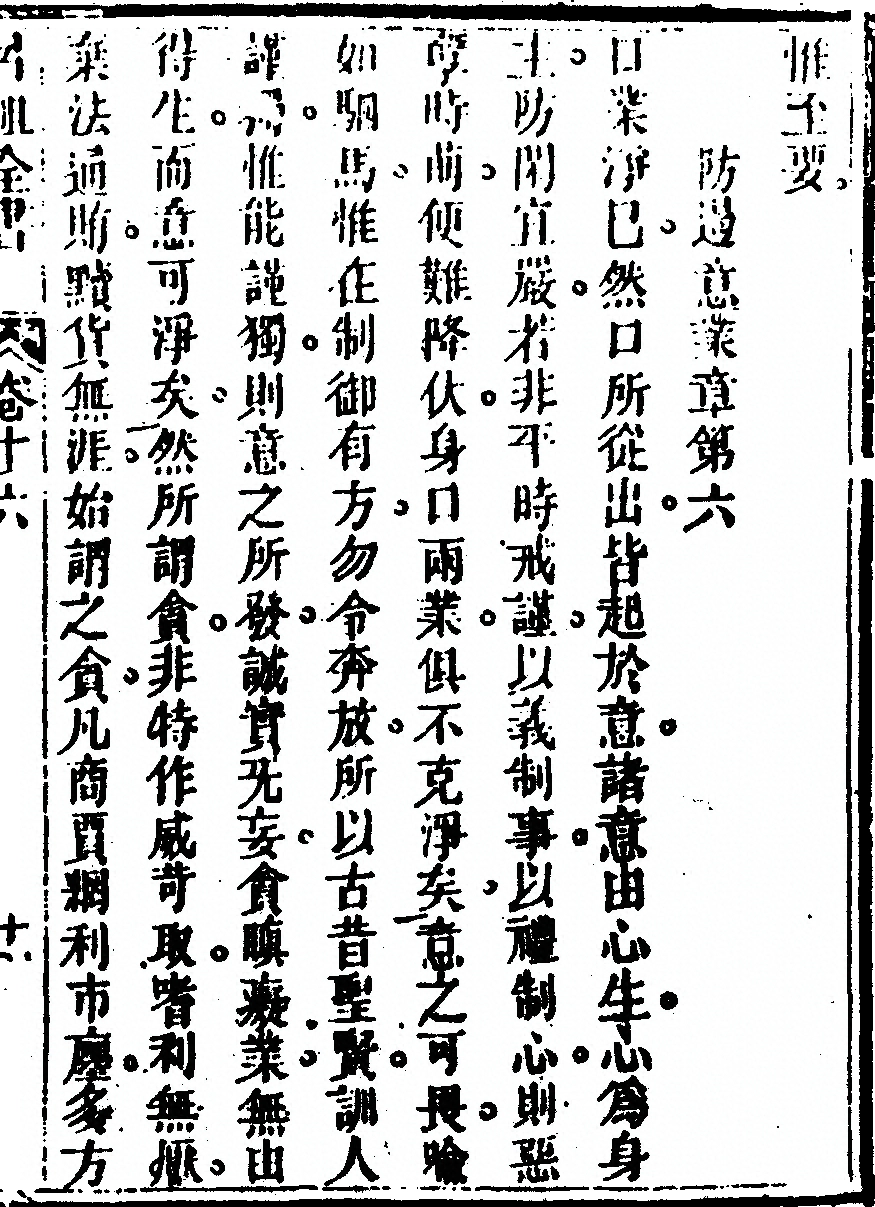 惟至要
防過意業章第六
口業淨已然口所從出皆起於意諸意由心生心爲身
主防閑宜嚴若非平時戒謹以義制事以禮制心則惡
孽時萌便難降伏身口兩業俱不克淨矣意之可畏喻
如駉馬惟在制御有方勿令奔放所以古昔聖賢訓人
謹獨惟能謹獨則意之所發誠實旡妄貪瞋癡業無由
得生而意可淨矣然所謂貪非特作威苛取嗜利無厭
棄法通賄黷貨無涯始謂之貪凡商賈網利市廛多方
卷十六